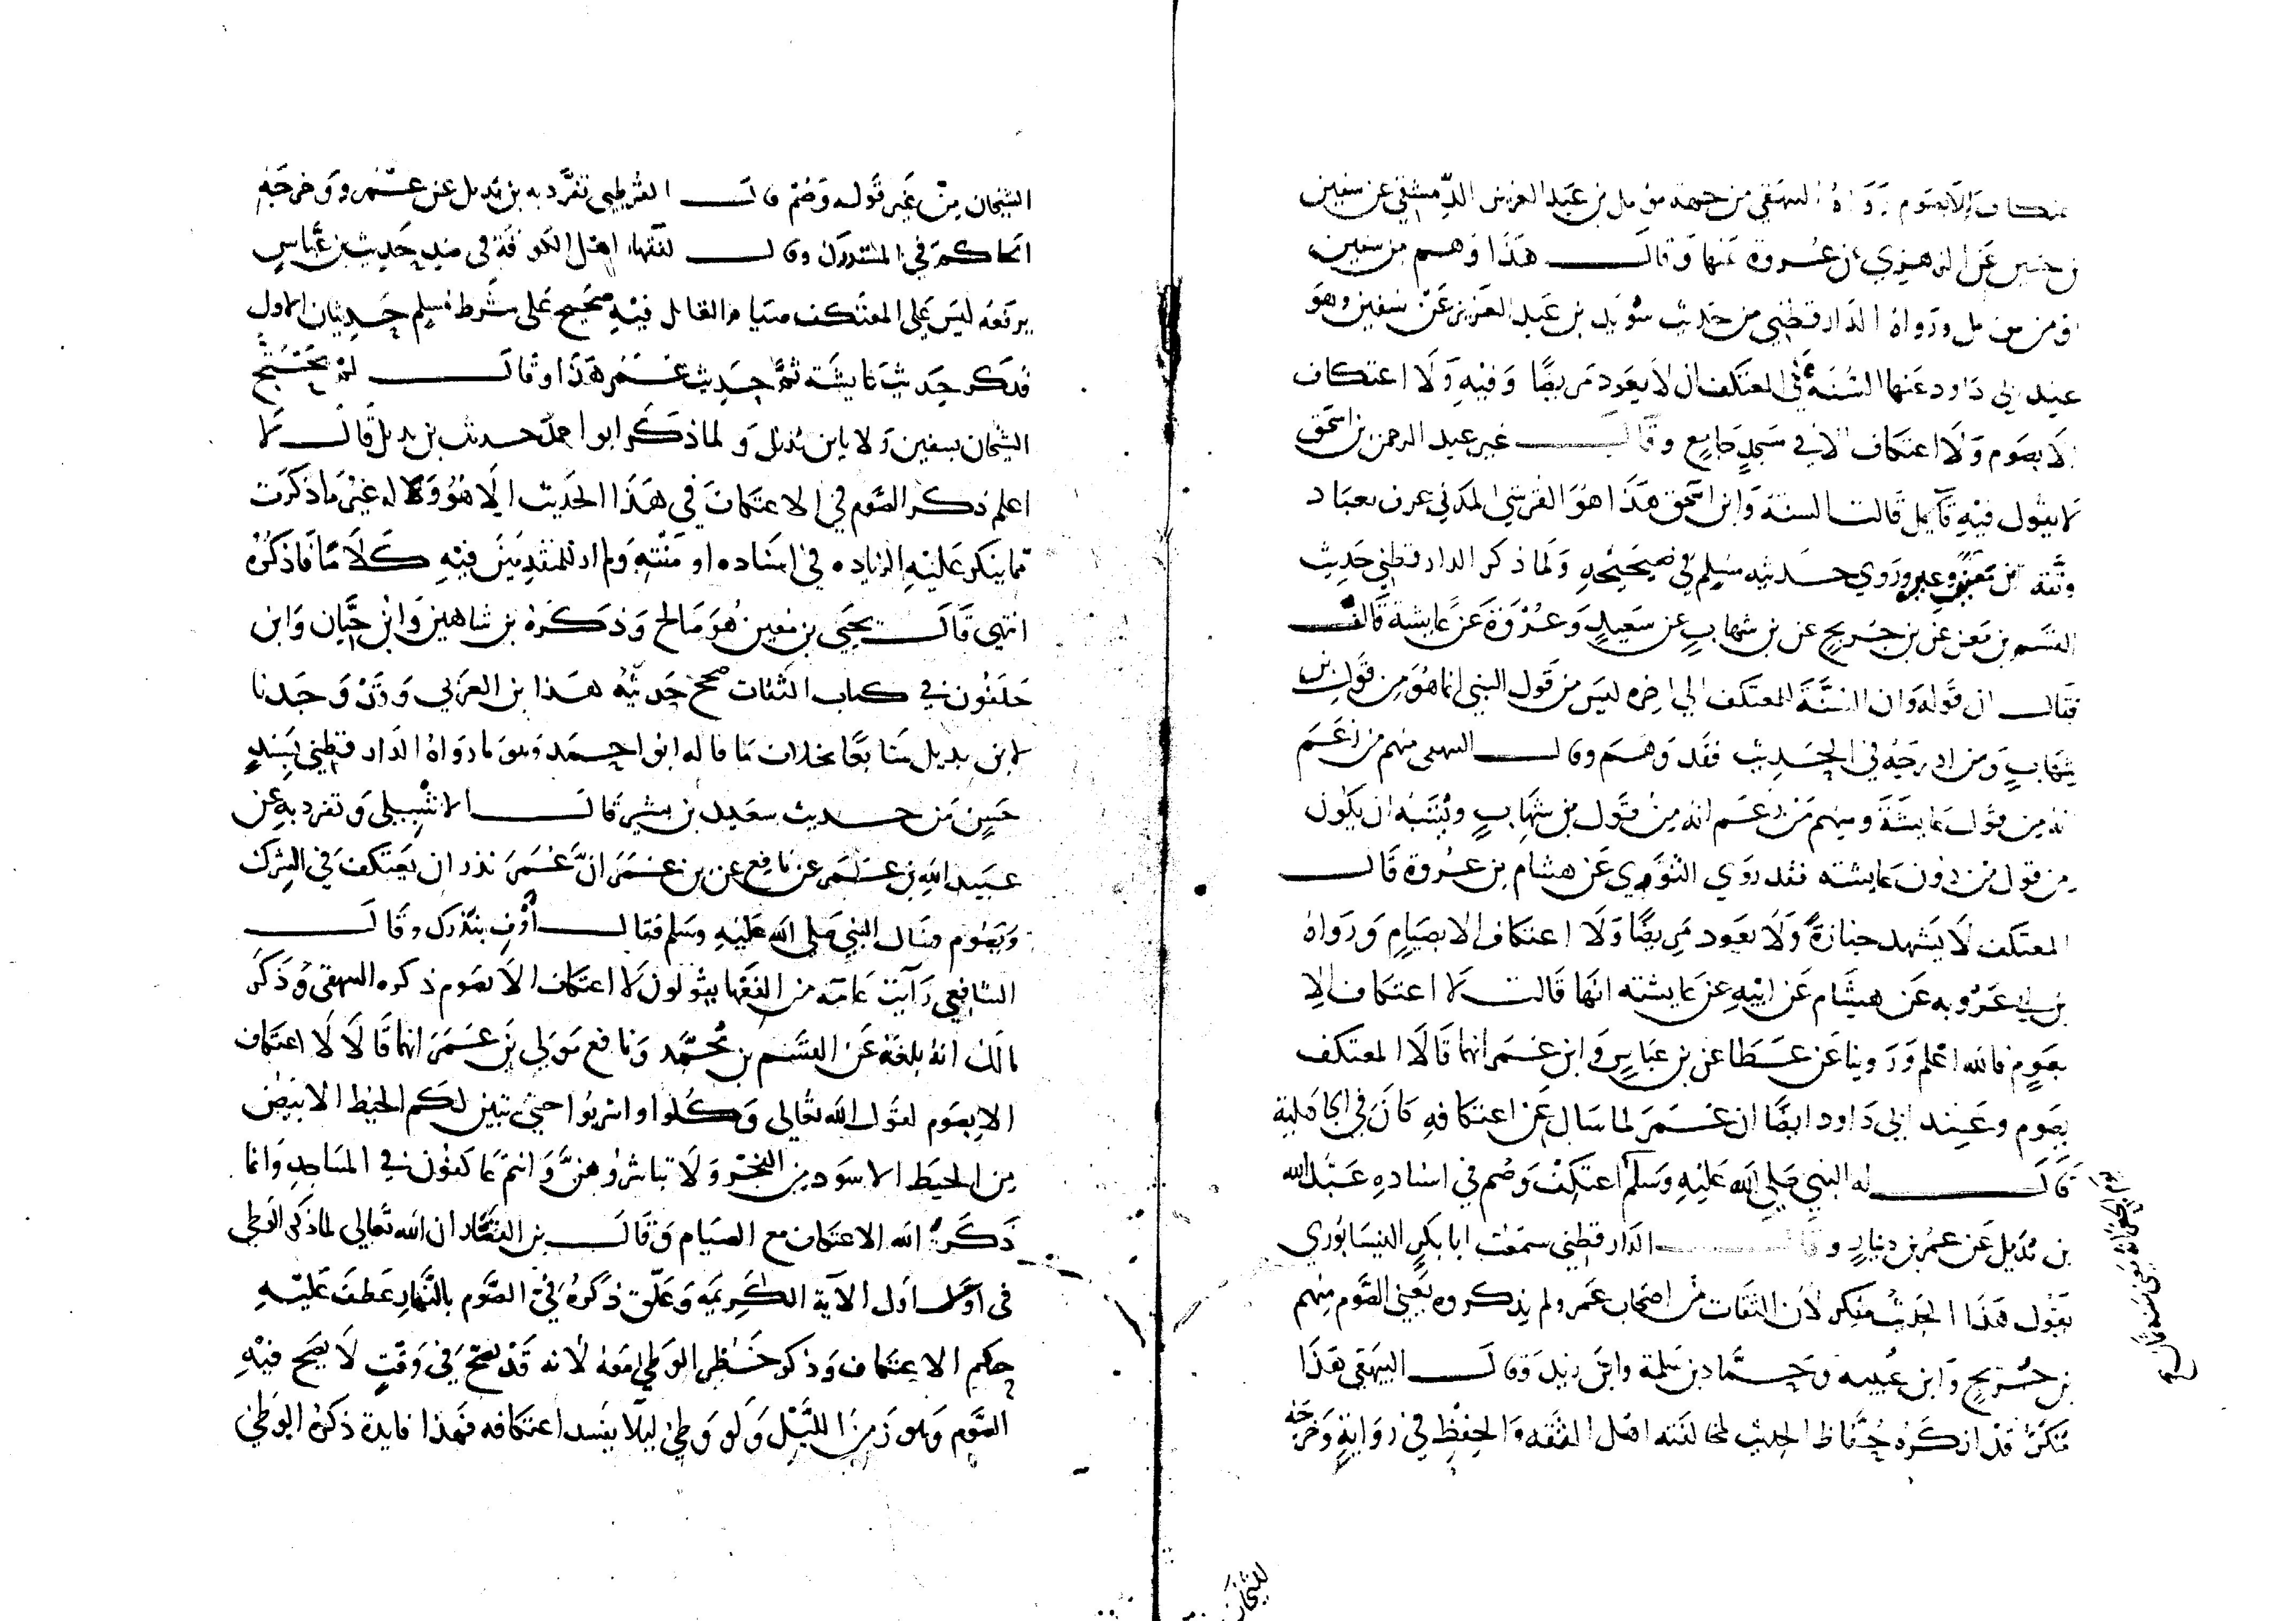 عتكاف الا بصوم رواه البيهقي من جهة مؤمل بن عبد العزيز الدمشقي عن سفين
بن حسين عن الزهري عن عروة عنها وقال هذا وهم من سفين
او من مؤمل ورواه الدارقطني من حديث سويد بن عبد العزيز عن سفين وهو
عند ابي داود عنها السنة في المعتكف ان لا يعود مريضا وفيه ولا اعتكاف
الا بصوم ولا اعتكاف الا في مسجد جامع وقال غير عبد الرحمن بن اسحق
لا يقول فيه قايل قالت السنة وابن اسحق هذا هو القرشي المدني عرف بعباد
وثقه ابن معين وغيره وروي حديثه مسلم في صحيحه ولما ذكر الدارقطني حديث
القسم بن معن عن بن جريج عن بن شهاب عن سعيد وعروة عن عايشة قالت
فقال ان قوله وان السنة المعتكف الي اخره ليس من قول النبي انما هو من قول بن
شهاب ومن ادرجه في الحديث فقد وهم وقال البيهقي منهم من زعم
انه من قول عايشة ومنهم من زعم انه من قول بن شهاب ويشبه ان يكون
من قول من دون عايشه فقد روي الثوري عن هشام بن عروة قال
المعتكف لا يشهد جنازة ولا يعود مريضا ولا اعتكاف الا بصيام ورواه
بن ابي عروبه عن هشام عن ابيه عن عايشه انها قالت لا اعتكاف الا
بصوم فالله اعلم وروينا عن عطا عن بن عباس وابن عمر انهما قالا المعتكف
يصوم وعند ابي داود ايضا ان عمر لما سال عن اعتكافه كان في الجاهلية
قال له النبي صلي الله عليه وسلم اعتكف وصم في اسناده عبد الله
بن بديل عن عمر بن دينار وقال الدارقطني سمعت ابا بكر النيسابوري
يقول هذا الحديث منكر لان الثقات من اصحاب عمر ولم يذكروه يعني الصوم منهم
بن جريج وابن عيينه وحماد بن سلمة وابن زيد وقال البيهقي هذا
منكر قد انكره حفاظ الحديث لمخالفته اهل الثقه والحفظ في رواية وخرجه
الشيخان
الشيخان من غير قوله وصم قال القرطبي تفرد به بن بديل عن عمرو وخرجه
الحاكم في المستدرك وقال لفقهاء اهل الكوفة في ضد حديث بن عباس
يرفعه ليس علي المعتكف صيام القايل فيه صحيح على شرط مسلم حديثان الاول
فذكر حديث عايشة ثم حديث عمر هذا وقال لم يحتج
الشيخان بسفين ولا بابن بديل ولما ذكر ابو احمد حديث بن بديل قال لا
اعلم ذكر الصوم في الاعتكاف في هذا الحديث الا هو وله غير ما ذكرت
مما ينكر عليه الزياده في اسناده او متنه ولم ار للمتقدمين فيه كلاما فاذكره
انتهي قال يحيى بن معين هو صالح وذكره بن شاهين وابن حبان وابن
خلفون في كتاب الثقات صحح حديثه هذا بن العربي وقد وجدنا
لابن بديل متابعا بخلاف ما قاله ابو احمد وهو ما رواه الدارقطني بسند
حسن من حديث سعيد بن بشير قال الاشبيلي وتفرد به عن
عبيد الله بن عمر عن نافع عن بن عمر ان عمر نذر ان يعتكف في الشرك
ويصوم فسال النبي صلي الله عليه وسلم فقال اوف بنذرك وقال
الشافعي رايت عامة من الفقها يقولون لا اعتكاف الا بصوم ذكره البيهقي وذكر
مالك انه بلغه عن القسم بن محمد ونافع مولي بن عمر انهما قالا لا اعتكاف
الا بصوم لقول الله تعالي وكلوا واشربوا حتى يتبين لكم الخيط الابيض
من الخيط الاسود من الفجر ولا تباشروهن وانتم عاكفون في المساجد وانما
ذكر الله الاعتكاف مع الصيام وقال بن القصار ان الله تعالي لما ذكر الوطي
في اول الآية الكريمه وعلق ذكره في الصوم بالنهار عطف عليه
حكم الاعتكاف وذكر حظر الوطي معه لانه قد يصح في وقت لا يصح فيه
الصوم وهو زمن الليل ولو وطي ليلا يفسد اعتكافه فهذا فايدة ذكر الوطي